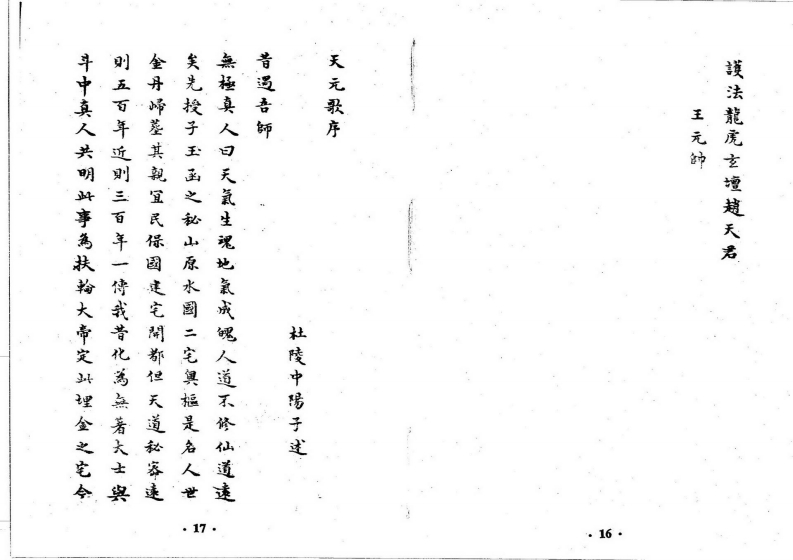 護法龍虎玄壇趙天君
王元帥
· 16 ·
天元歌序
杜陵中陽子述
昔遇吾師
無極真人曰天氣生魂地氣成魄人道不修仙道遠
矣先授子玉函之秘山原水國二宅輿樞是名人世
金丹歸塋其親宜民保國建宅開都但天道秘密遠
則五百年近則三百年一傳我昔化為無著大士與
斗中真人共明此事為扶輪大帝定此埋金之宅今
· 17 ·